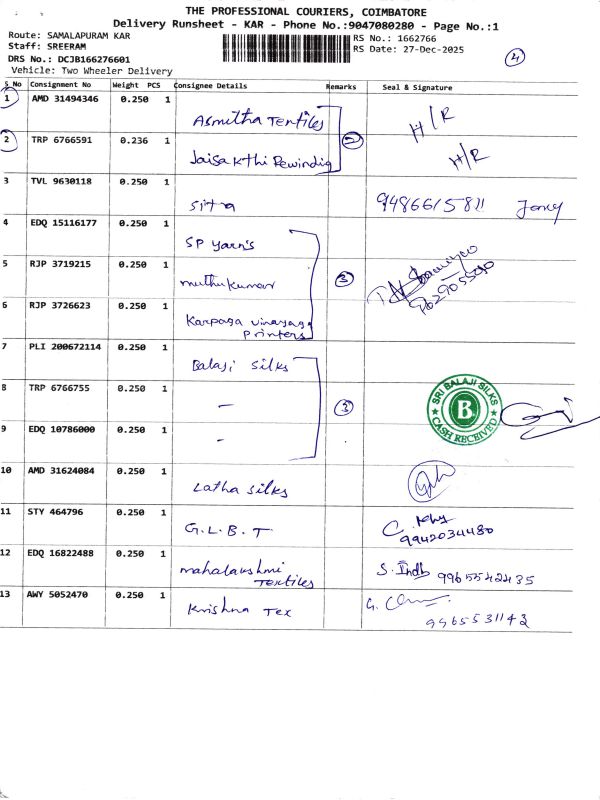 THE PROFESSIONAL COURIERS, COIMBATORE
Delivery Runsheet - KAR - Phone No.:9047080280 - Page No.:1
Route: SAMALAPURAM KAR
RS No.: 1662766
Staff: SREERAM
RS Date: 27-Dec-2025
DRS No.: DCJB166276601
4
Vehicle: Two Wheeler Delivery
S No Consignment No Weight PCS Consignee Details Remarks Seal & Signature
1 AMD 31494346 0.250 1 Asmitha Textiles H/R
2 TRP 6766591 0.236 1 Jaisakthi Rewinding 2 H/R
3 TVL 9630118 0.250 1 Sitra 9486615811
4 EDQ 15116177 0.250 1 SP Yarn's
5 RJP 3719215 0.250 1 muthukumar 3 9629055090
6 RJP 3726623 0.250 1 Karpaga vinayaga
printers
7 PLI 200672114 0.250 1 Balaji Silks
8 TRP 6766755 0.250 1 - 3 SRI BALAJI SILKS
B
CASH RECEIVED
9 EDQ 10786000 0.250 1 -
10 AMD 31624084 0.250 1 Latha silks
11 STY 464796 0.250 1 G.L.B.T
9942034480
12 EDQ 16822488 0.250 1 mahalakshmi
Textiles S. 9965542435
13 AWY 5052470 0.250 1 Krishna Tex G.
9965531142